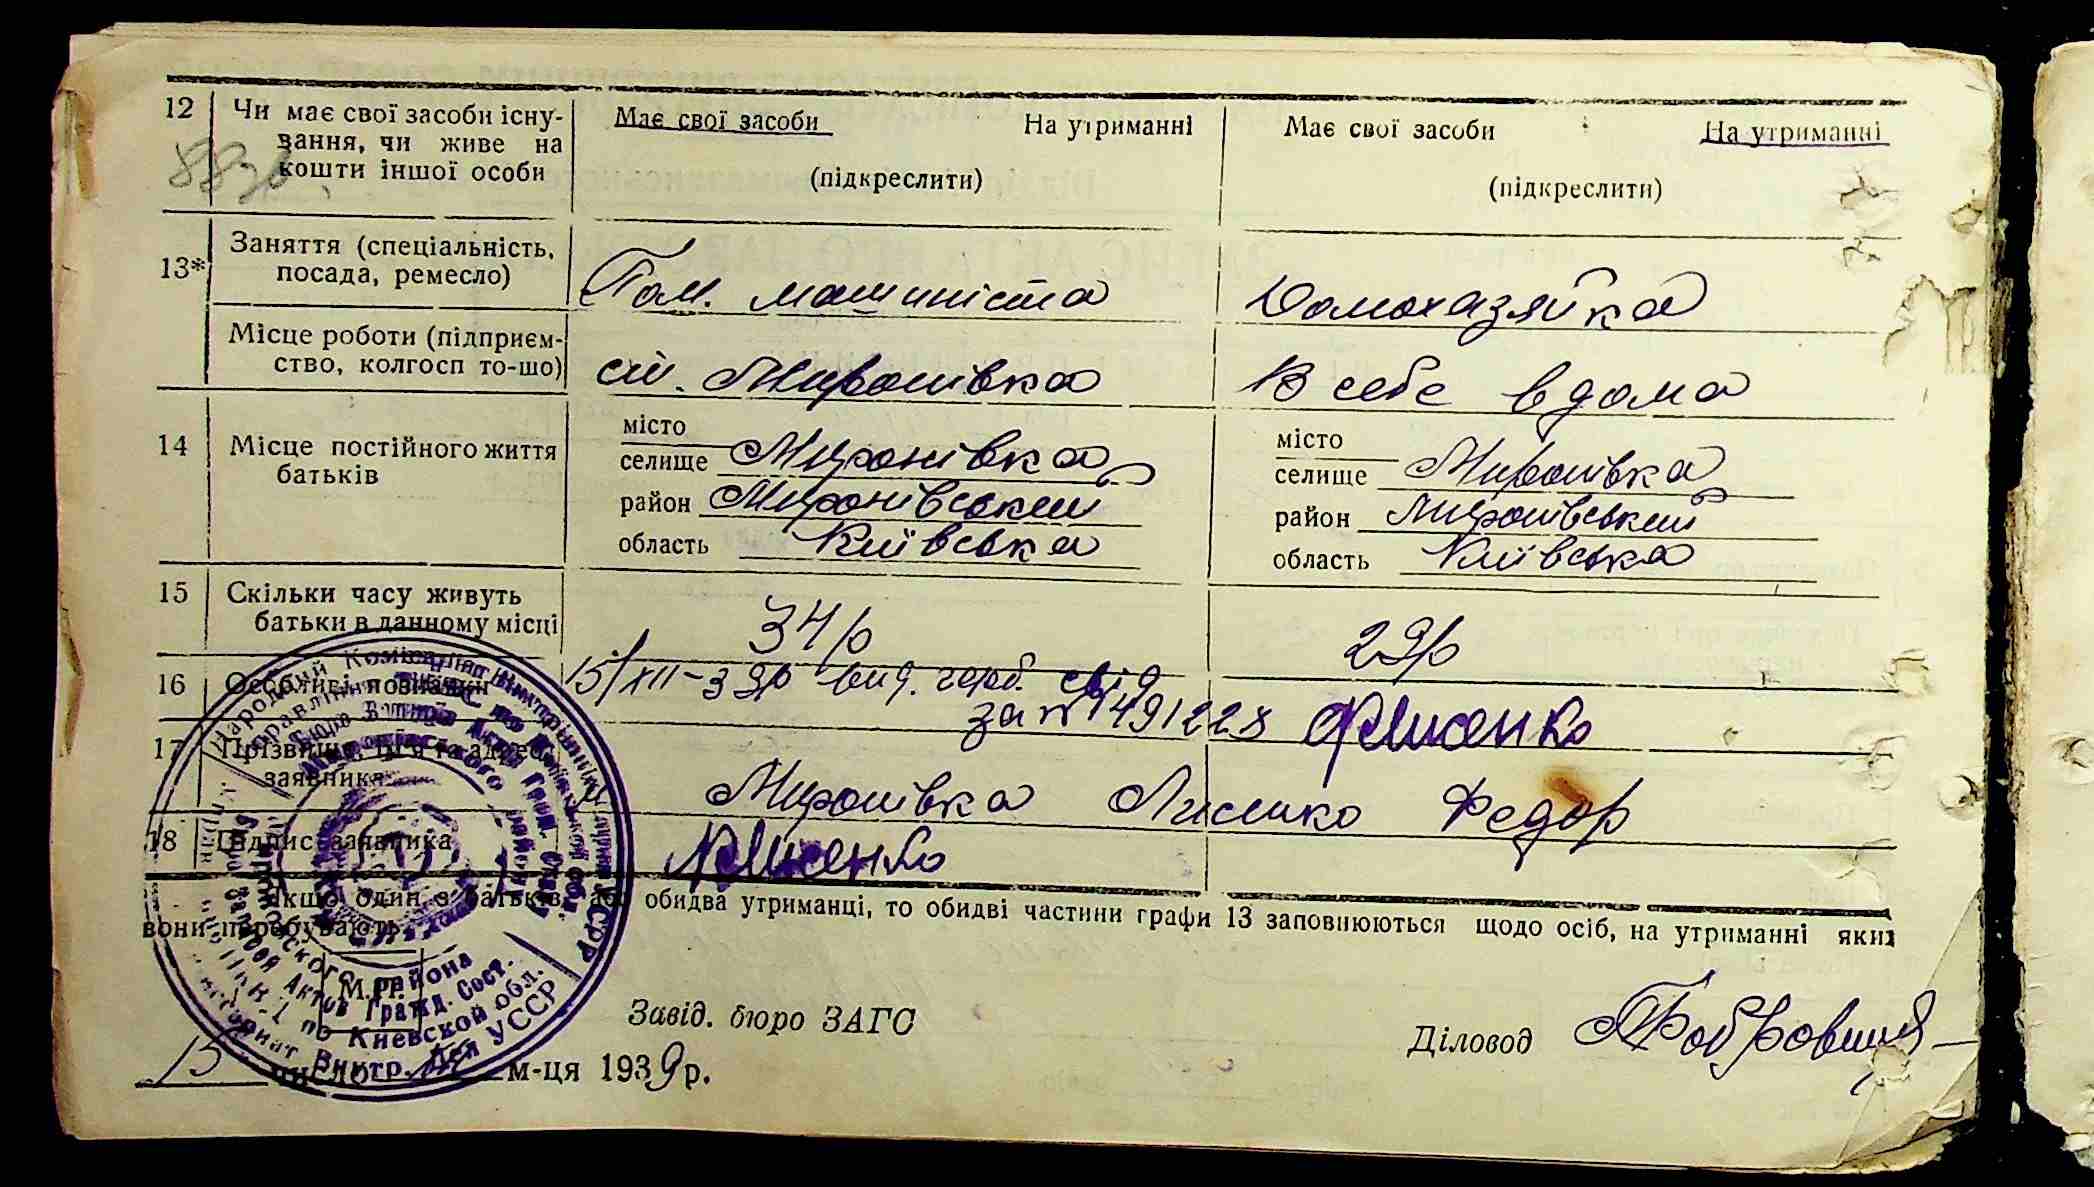 12 Чи має свої засоби існу-
вання, чи живе на
кошти іншої особи
Має свої засоби На утриманні
(підкреслити)
Має свої засоби На утриманні
(підкреслити)
883
13* Заняття (спеціальність,
посада, ремесло)
Пом. машиніста
Домохазяйка
Місце роботи (підприєм-
ство, колгосп то-що)
ст. Миронівка
В себе вдома
14 Місце постійного життя
батьків
місто
селище Миронівка
район Миронівський
область Київська
місто
селище Миронівка
район Миронівський
область Київська
15 Скільки часу живуть
батьки в данному місці
34 р
29 р
16 Особливі познаки
15/XII-39р вид. герб. свід
за № 1491228 Ф Лисенко
17 Прізвище, ім'я та адреса
заявника
Миронівка Лисенко Федор
18 Підпис заявника
Ф Лисенко
Якщо один з батьків або обидва утриманці, то обидві частини графи 13 заповнюються щодо осіб, на утриманні яких
вони перебувають.
М.П.
Народний Комісаріат Внутрішніх Справ УСРР
района
Актов Гражд. Сост.
по Киевской обл.
Внутр. Дел УССР
Завід. бюро ЗАГС
Діловод
15 число м-ця 1939 р.